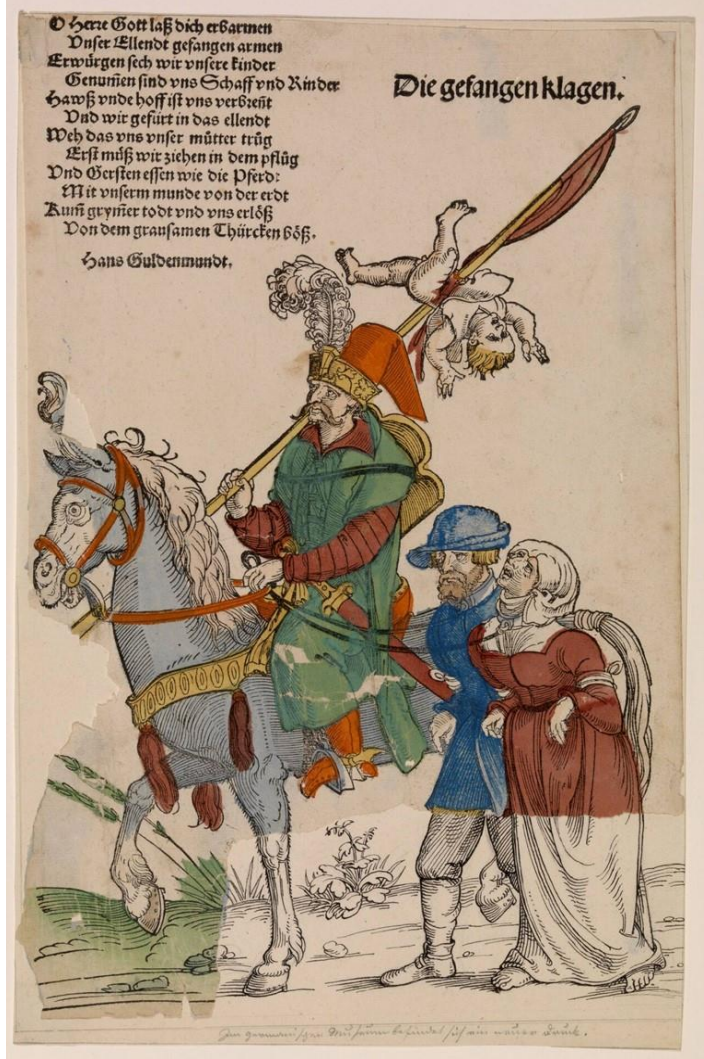 O Herre Gott laß dich erbarmen
Vnser Ellendt gefangen armen
Erwürgen sech wir vnsere kinder
Genum̃en sind vns Schaff vnd Rinder
Hawß vnde hoff ist vns verbreñt
Vnd wir gefürt in das ellendt
Weh das vns vnser mütter trüg
Erst müß wir ziehen in dem pflüg
Vnd Gersten essen wie die Pferd:
Mit vnserm munde von der erdt
Kum̃ grym̃er todt vnd vns erlöß
Von dem grausamen Thürcken böß.
Hans Guldenmundt.
Die gefangen klagen.
Im germanischen Museum befindet sich ein neuer Druck.